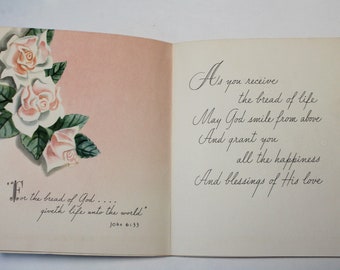 "For the bread of God . . . .
giveth life unto the world"
JOHN 6:33
As you receive
the bread of life
May God smile from above
And grant you
all the happiness
And blessings of His love